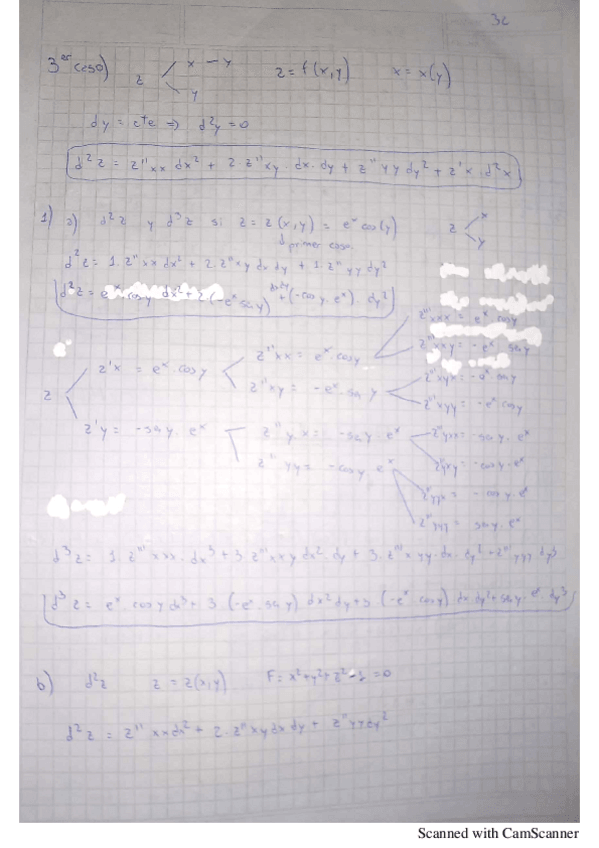 32
3er caso) z x - y z = f(x,y) x = x(y)
y
dy = cte => d²y = 0
d²z = z''xx dx² + 2·z''xy·dx·dy + z''yy dy² + z'x·d²x
1) a) d²z y d³z si z = z(x,y) = e^x cos(y) z x
primer caso. y
d²z = 1·z''xx dx² + 2·z''xy dx dy + 1·z''yy dy²
d²z = e^x cosy dx² + 2·(-e^x sen y) dxdy + (-cos y·e^x)·dy²
z'''xxx = e^x cosy
z''xx = e^x·cosy z'''xxy = -e^x sen y
z'x = e^x·cosy z'''xyx =
z z''xy = -e^x·sen y z'''xyy = -e^x cosy
z'y = -sen y·e^x z''yx = -sen y·e^x z'''yxx = -sen y·e^x
z''yy = -cosy e^x z'''yxy = -cosy·e^x
z'''yyx = -cosy·e^x
z'''yyy = sen y·e^x
d³z = 1·z'''xxx·dx³ + 3 z'''xxy dx²·dy + 3·z'''xyy·dx·dy² + z'''yyy dy³
d³z = e^x·cosy dx³ + 3·(-e^x·sen y) dx²dy + 3·(-e^x cosy) dx dy² + sen y·e^x·dy³
b) d²z z = z(x,y) F = x²+y²+z²-1 = 0
d²z = z''xx dx² + 2·z''xy dx dy + z''yy dy²
Scanned with CamScanner